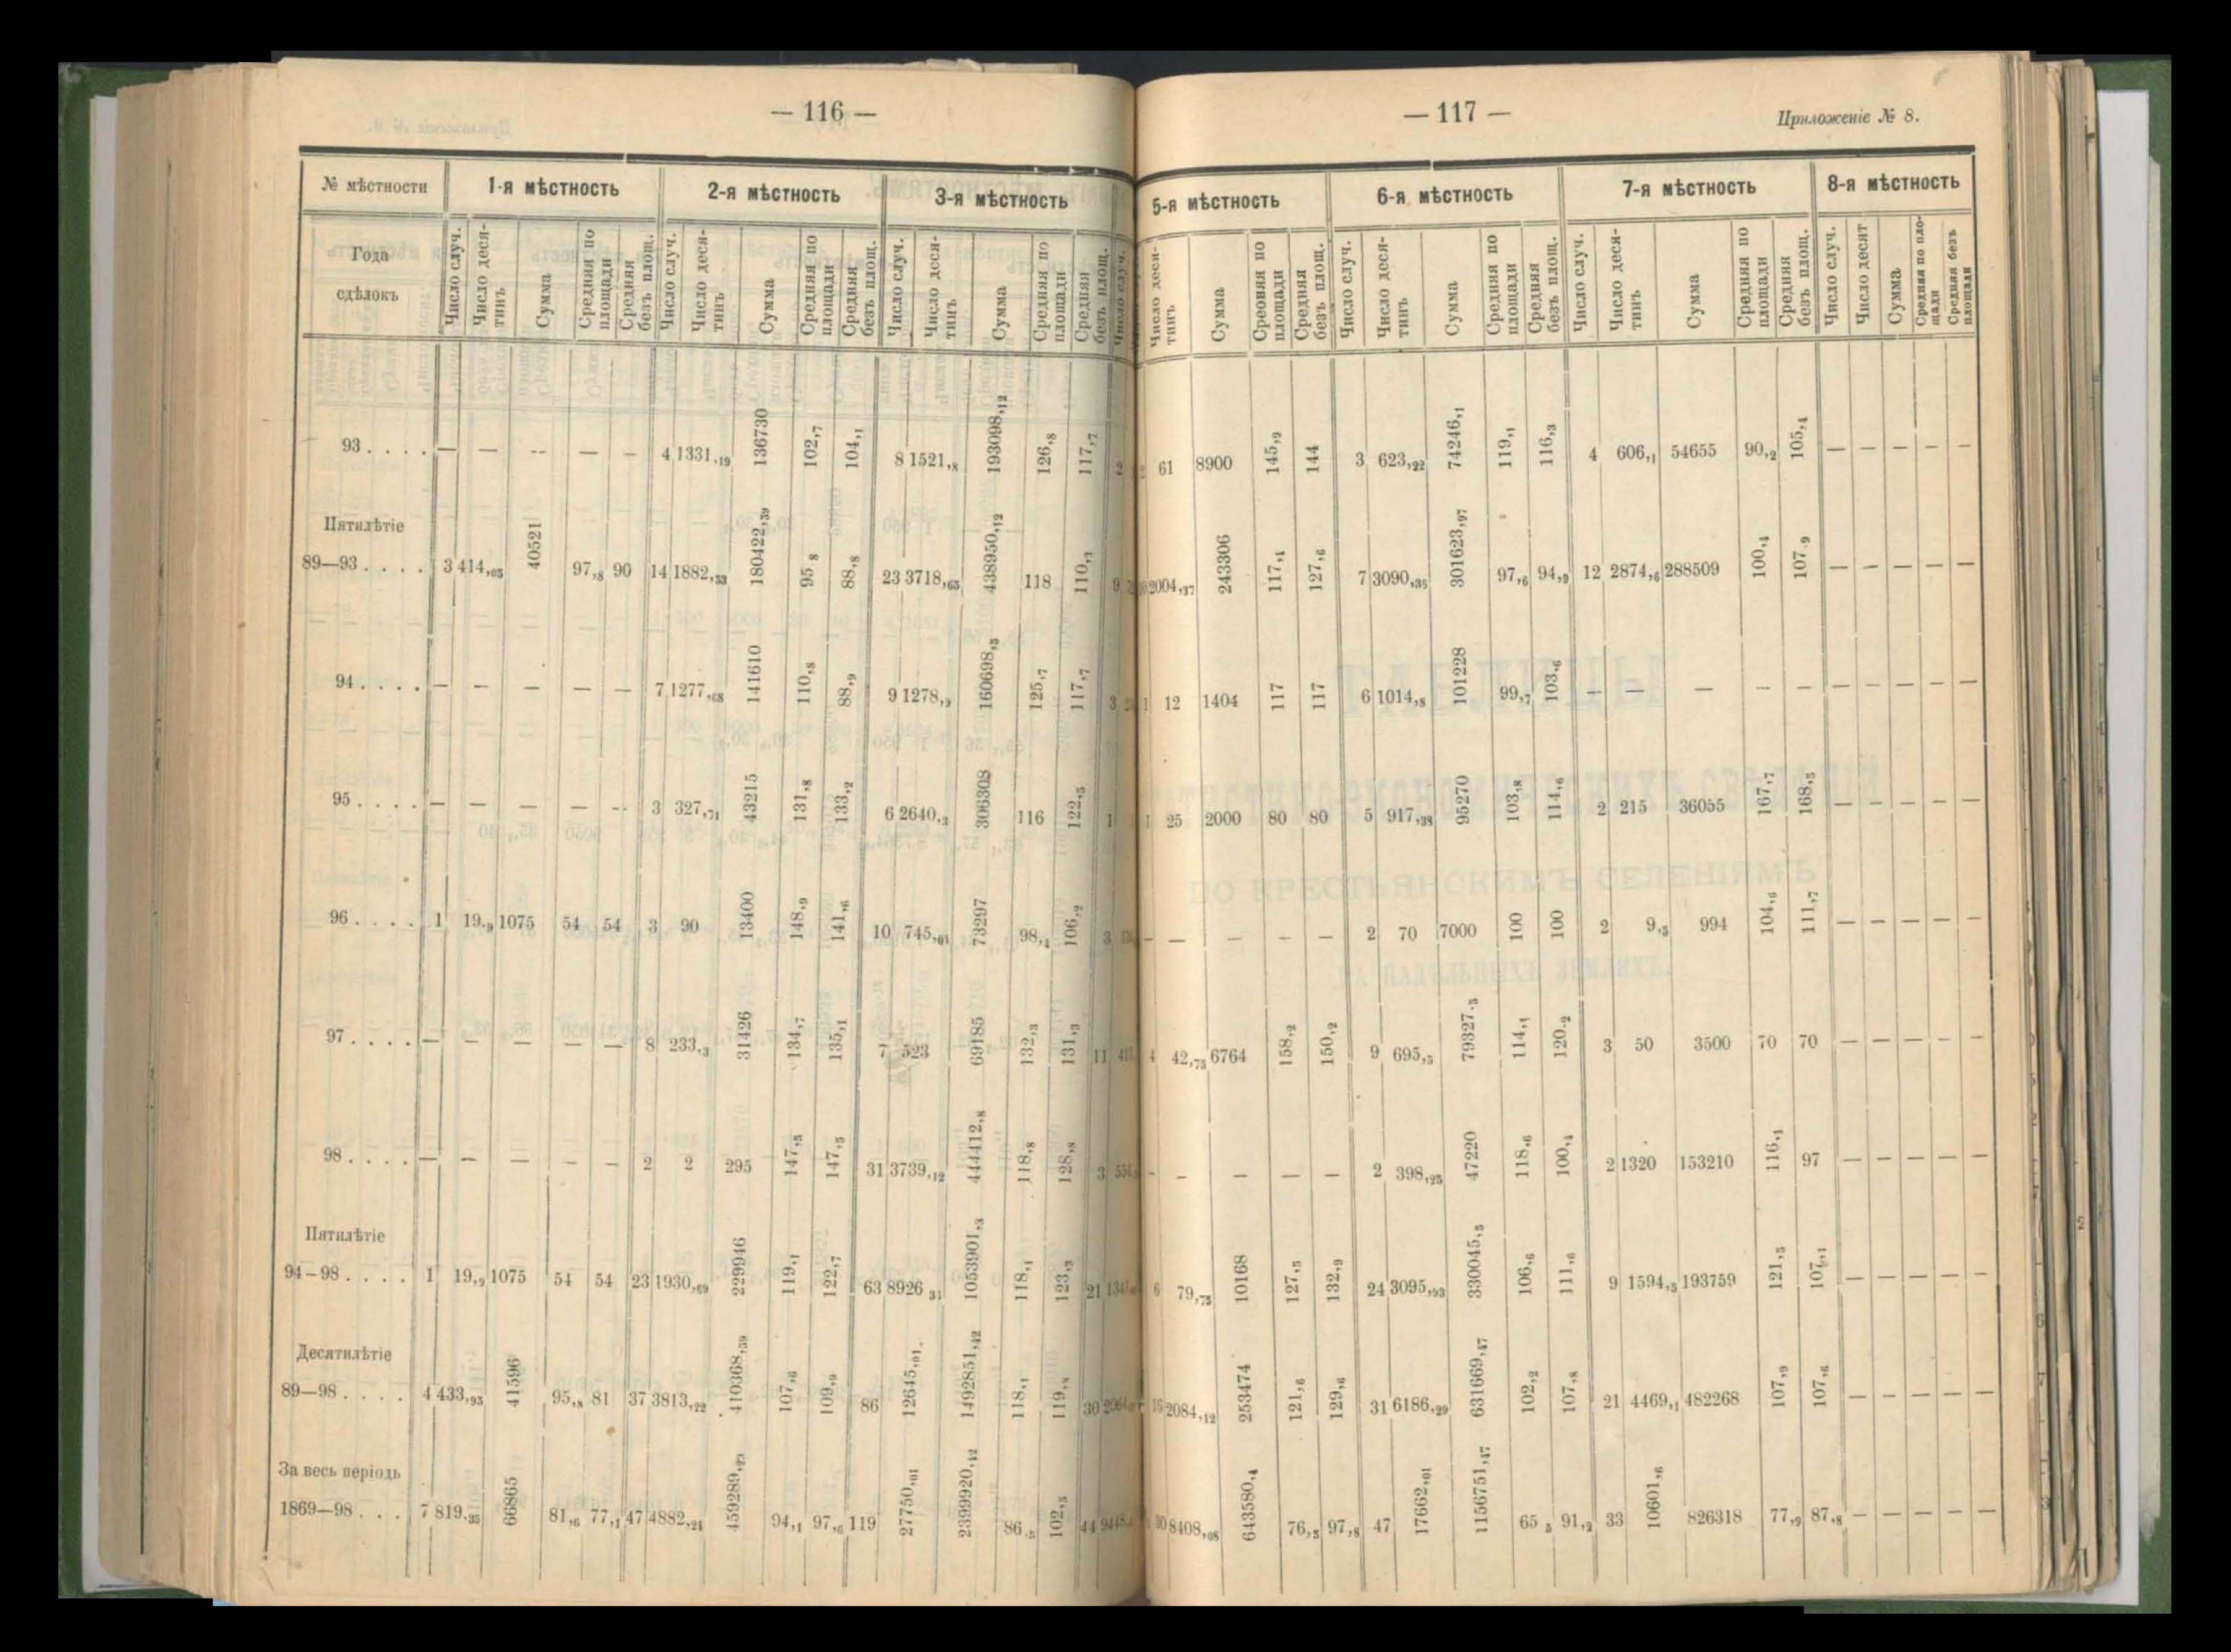 — 116 —
№ мѣстности 1-я мѣстность 2-я мѣстность 3-я мѣстность
Года сдѣлокъ Число случ. Число деся-тинъ Сумма Средняя по площади Средняя безъ площ. Число случ. Число деся-тинъ Сумма Средняя по площади Средняя безъ площ. Число случ. Число деся-тинъ Сумма Средняя по площади Средняя безъ площ. Число случ.
93 . . . . — — -- — — 4 1331,19 136730 102,7 104,1 8 1521,8 193098,12 126,8 117,7 2
Пятилѣтіе
89—93 . . . . 3 414,05 40521 97,8 90 14 1882,53 180422,39 95 8 88,8 23 3718,65 438950,12 118 110,3 9
94 . . . . — — — — — 7 1277,68 141610 110,8 88,9 9 1278,9 160698,5 125,7 117,7 3
95 . . . . — — — — -- 3 327,71 43215 131,8 133,2 6 2640,3 306308 116 122,5 1
96 . . . . 1 19,9 1075 54 54 3 90 13400 148,9 141,6 10 745,01 73297 98,4 106,2 3
97 . . . . — — — — — 8 233,3 31426 134,7 135,1 7 523 69185 132,3 131,3 11
98 . . . . — — — — — 2 2 295 147,5 147,5 31 3739,12 444412,8 118,8 128,8 3
Пятилѣтіе
94–98 . . . . 1 19,9 1075 54 54 23 1930,69 229946 119,1 122,7 63 8926 31 1053901,3 118,1 123,3 21
Десятилѣтіе
89—98 . . . . 4 433,95 41596 95,8 81 37 3813,22 410368,39 107,6 109,9 86 12645,01. 1492851,42 118,1 119,8 30
За весь періодъ
1869—98 . . . 7 819,35 66865 81,6 77,1 47 4882,24 459289,23 94,1 97,6 119 27750,01 2399920,12 86,5 102,5 44
— 117 —
Приложеніе № 8.
5-я мѣстность 6-я мѣстность 7-я мѣстность 8-я мѣстность
Число деся-тинъ Сумма Средняя по площади Средняя безъ площ. Число случ. Число деся-тинъ Сумма Средняя по площади Средняя безъ площ. Число случ. Число деся-тинъ Сумма Средняя по площади Средняя безъ площ. Число случ. Число десят Сумма Средняя по пло-щади Средняя безъ площади
61 8900 145,9 144 3 623,22 74246,1 119,1 116,3 4 606,1 54655 90,2 105,4 — — — — —
2004,37 243306 117,4 127,6 7 3090,35 301623,97 97,6 94,9 12 2874,6 288509 100,4 107.9 — — — — —
1 12 1404 117 117 6 1014,8 101228 99,7 103,6 — — — -- — — — — — —
1 25 2000 80 80 5 917,38 95270 103,8 114,6 2 215 36055 167,7 168,5 — — — — —
— — — — — 2 70 7000 100 100 2 9,5 994 104,6 111,7 — — — — —
4 42,75 6764 158,2 150,2 9 695,5 79327.5 114,1 120.2 3 50 3500 70 70 — — — — —
— — — — — 2 398,25 47220 118,6 100,4 2 1320 153210 116,1 97 — — — — —
6 79,75 10168 127,5 132,9 24 3095,93 330045,5 106,6 111,6 9 1594,5 193759 121,5 107,1 — — — — —
2084,12 253474 121,6 129,6 31 6186,29 631669,47 102,2 107,8 21 4469,1 482268 107,9 107,6 — — — — —
8408,08 643580,4 76,5 97,8 47 17662,01 1156751,47 65 5 91,2 33 10601,6 826318 77,9 87,8 — — — — —